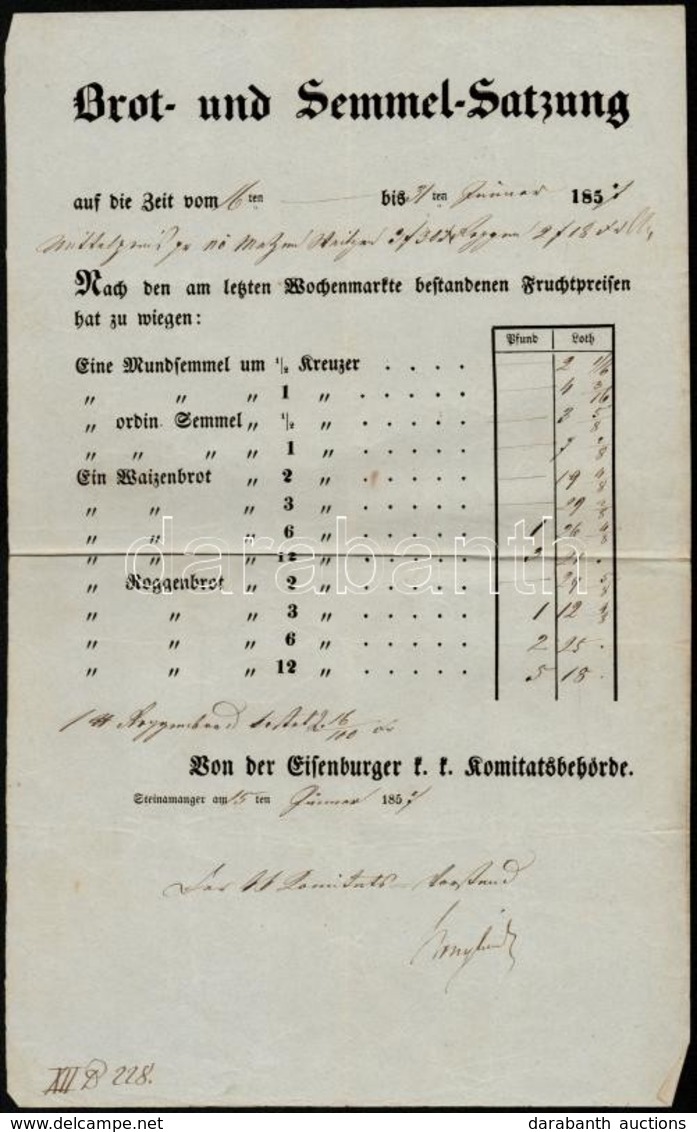 Brot- und Semmel-Satzung
auf die Zeit vom 16ten bis 31ten Jänner 1857
Mittelpreis pr nö Metzen Waitzen 3 f 30 Roggen 2 f 18
Nach den am letzten Wochenmarkte bestandenen Fruchtpreisen
hat zu wiegen:
Pfund Loth
Eine Mundsemmel um 1/2 Kreuzer . . . . 2 1/16
„ „ „ 1 „ . . . . . 4 3/16
„ ordin. Semmel „ 1/2 „ . . . . . 3 5/8
„ „ „ „ 1 „ . . . . . 7 2/8
Ein Waizenbrot „ 2 „ . . . . . 19 4/8
„ „ „ 3 „ . . . . . 29 2/8
„ „ „ 6 „ . . . . . 1 26 4/8
„ „ „ 12 „ . . . . .
„ Roggenbrot „ 2 „ . . . . . 5/8
„ „ „ 3 „ . . . . . 1 12 4/8
„ „ „ 6 „ . . . . . 2 25 .
„ „ „ 12 „ . . . . . 5 18 .
1 Roggenbrod kostet 2 16/100
Von der Eisenburger k. k. Komitatsbehörde.
Steinamanger am 15 ten Jänner 1857
Der kk Komitats-Vorstand
XII B 228.
darabanth
www.darabanth.com darabanth auctions